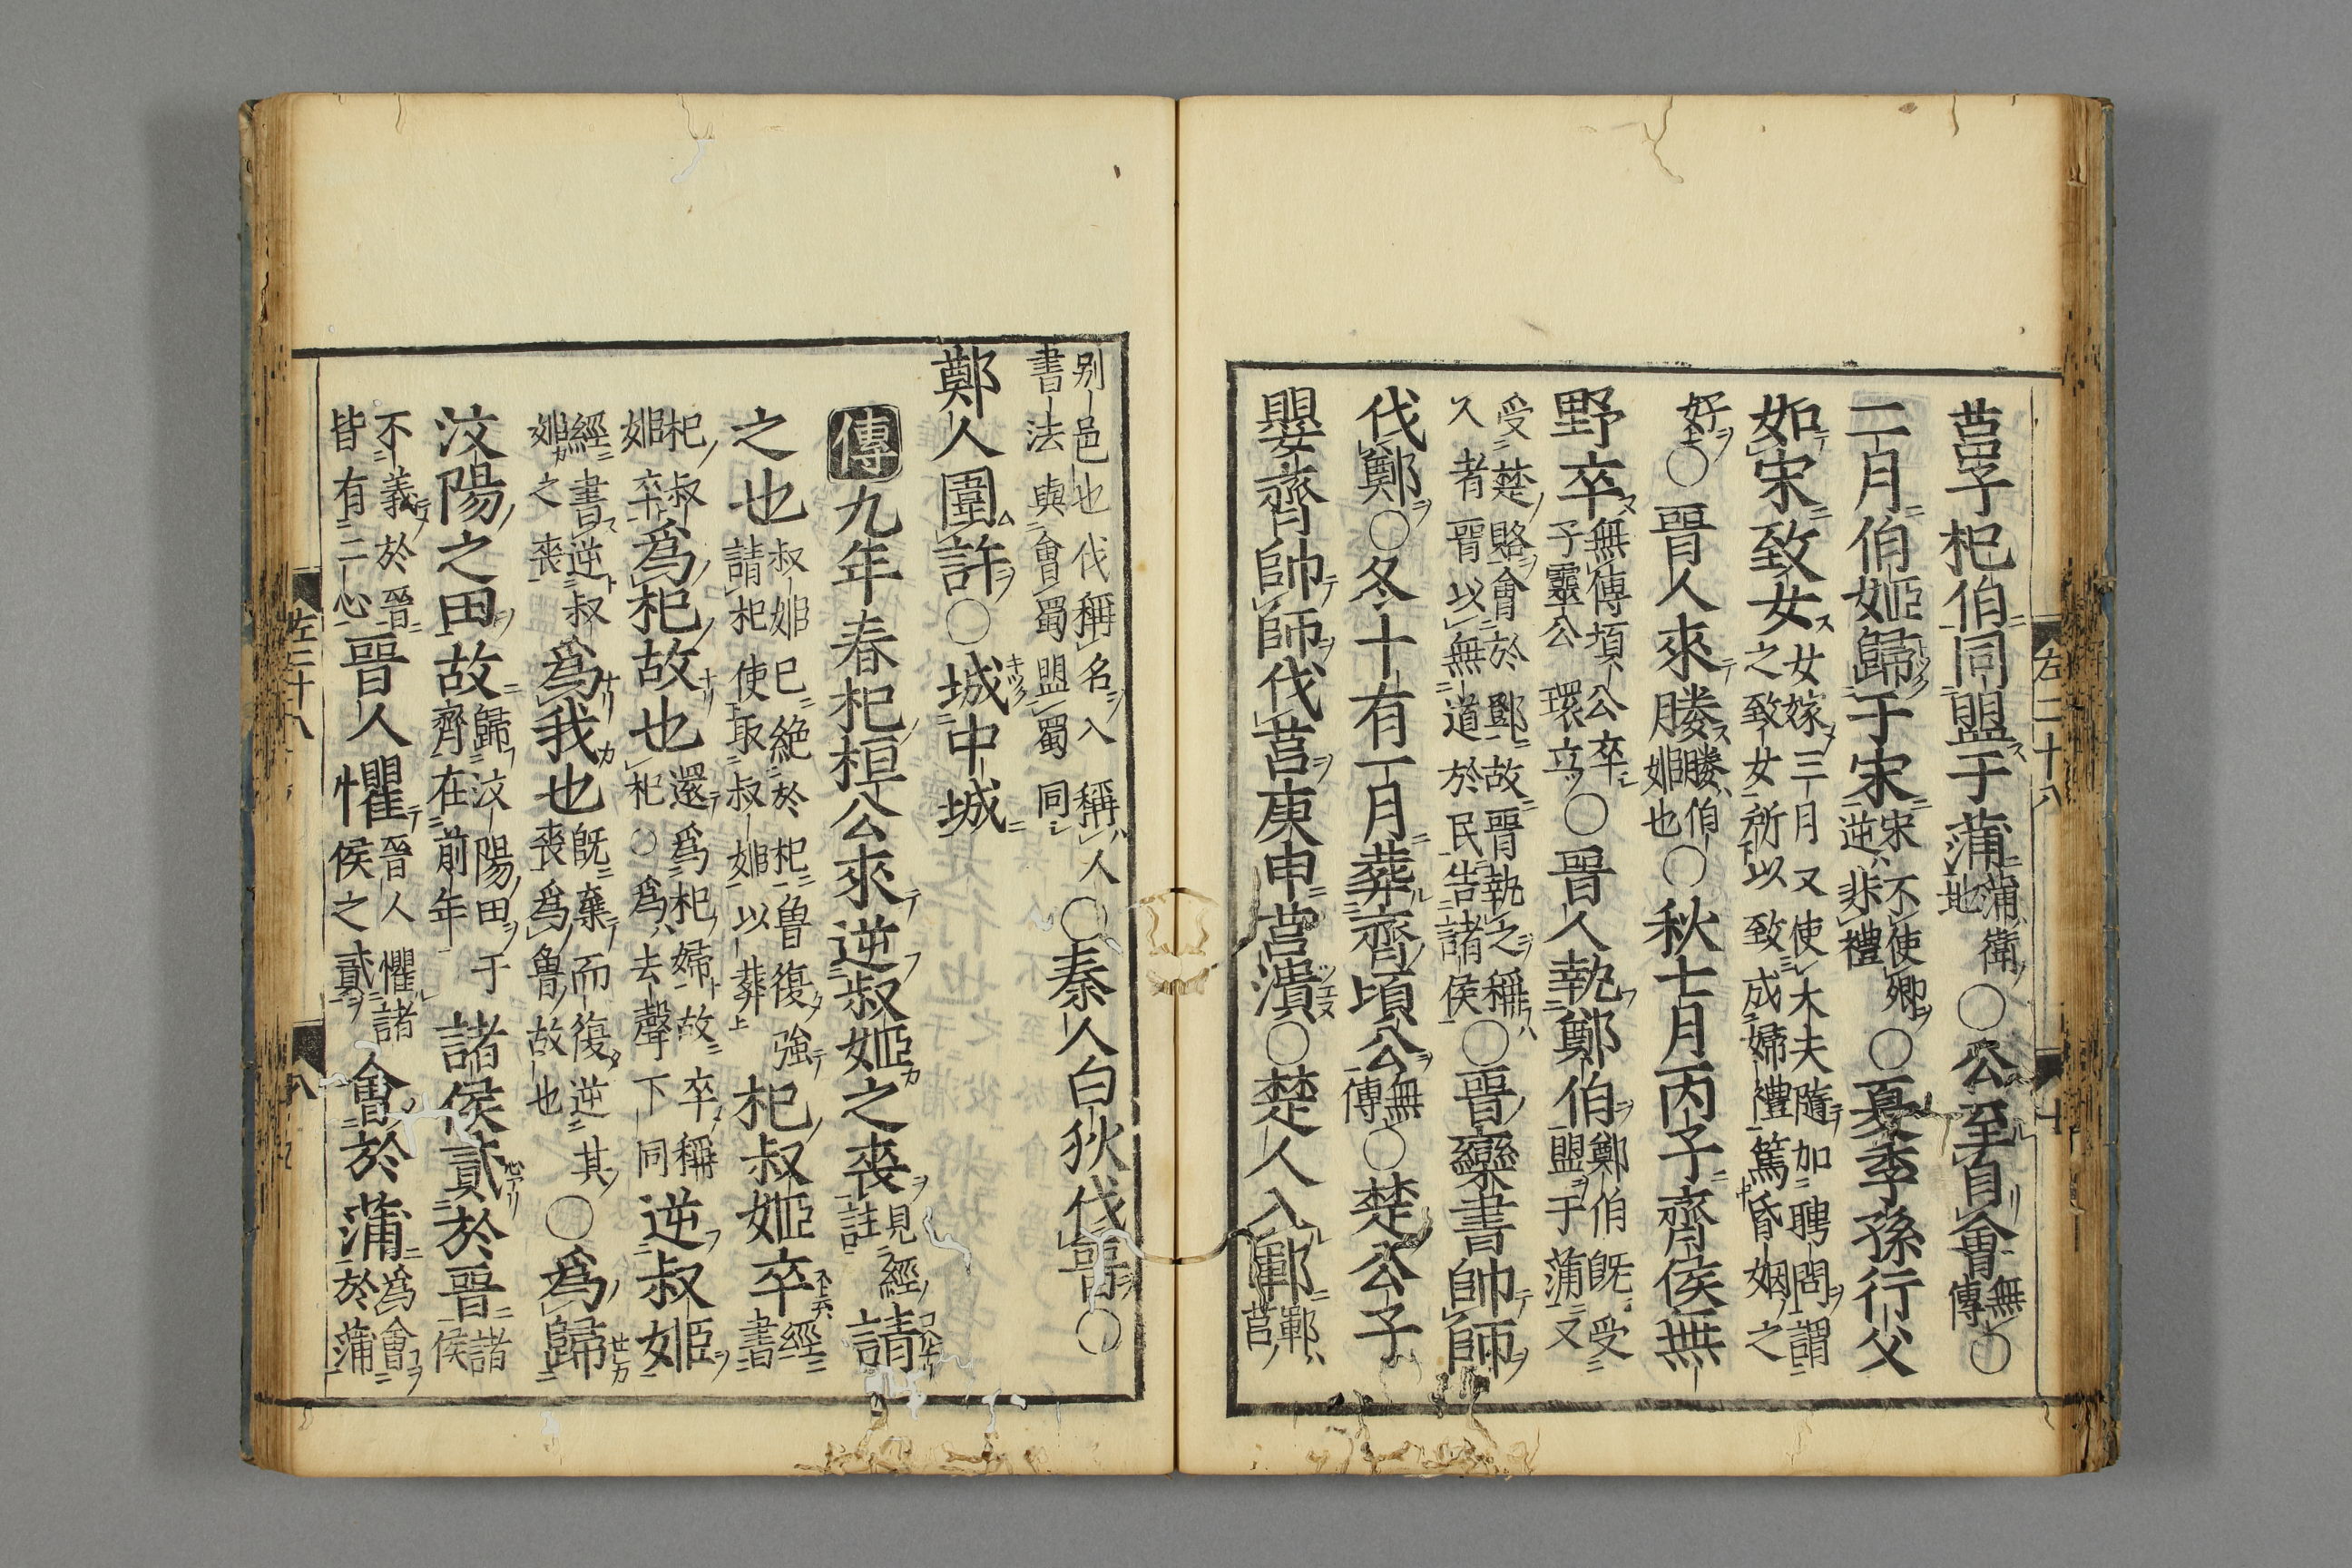 左二十八
莒子杞伯同盟于蒲蒲衛地○公至自會無傳○
二月伯姬歸于宋宋不使卿逆非禮○夏季孫行父
如宋致女女嫁三月又使大夫隨加聘問謂之致女所以致成婦禮篤昏姻之
好○晉人來媵媵伯姬也○秋七月丙子齊侯無
野卒無傳頃公卒子靈公環立○晉人執鄭伯鄭伯既受盟于蒲又
受楚賂會於鄧故晉執之稱人者晉以無道於民告諸侯○晉欒書帥師
伐鄭○冬十有一月葬齊頃公無傳○楚公子
嬰齊帥師伐莒庚申莒潰○楚人入鄆鄆莒
別邑也伐稱名入稱人書法與會蜀盟蜀同○秦人白狄伐晉○
鄭人圍許○城中城
傳九年春杞桓公來逆叔姬之喪見經註請
之也叔姬已絕於杞魯復強請杞使取叔姬以葬杞叔姬卒經書
杞叔姬卒為杞故也還為杞婦故卒稱杞○為去聲下同逆叔姬
經書逆叔姬之喪為我也既棄而復逆其喪為魯故也○為歸
汶陽之田故歸汶陽田于齊在前年諸侯貳於晉諸侯
不義於晉皆有二心晉人懼晉人懼諸侯之貳會於蒲為會於蒲
左二十八
八